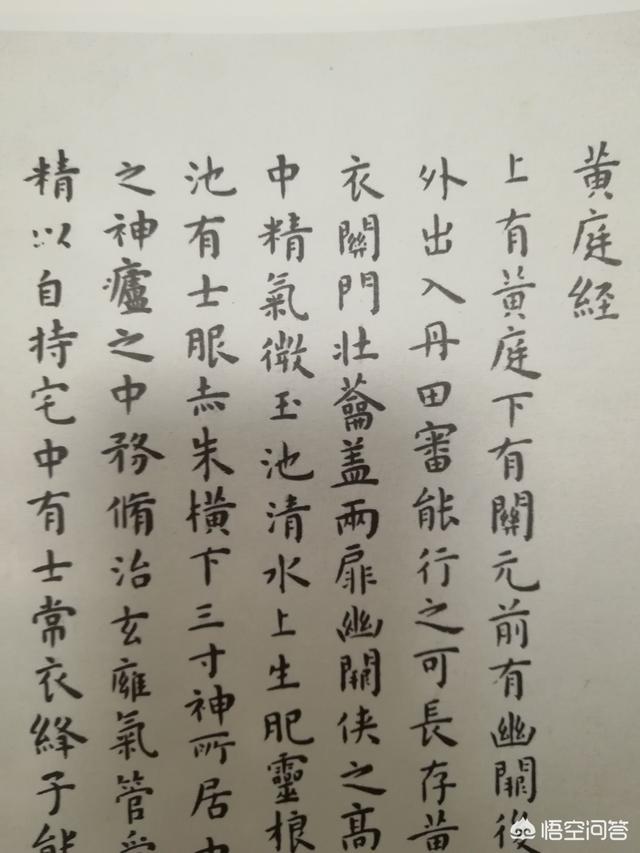 黄庭経
上有黄庭下有關元前有幽闕後
外出入丹田審能行之可長存黄
衣關門壮蘥盖兩扉幽關侠之高
中精氣微玉池清水上生肥靈根
池有士服赤朱橫下三寸神所居
之神廬之中務脩治玄癕氣管受
精以自持宅中有士常衣絳子能
悟空问答